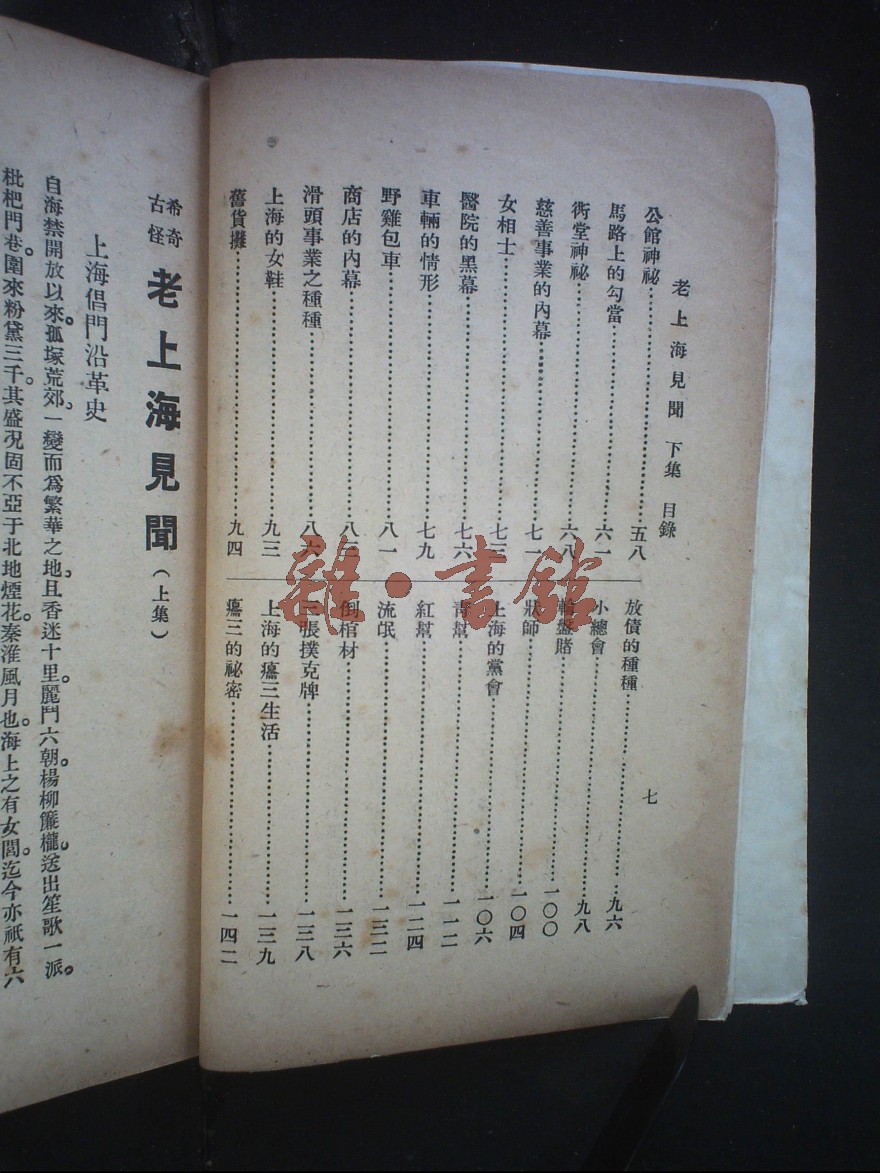 老上海見聞 下集 目錄
七
公館神祕……五八
馬路上的勾當……六一
衖堂神祕……六八
慈善事業的內幕……七一
女相士……七三
醫院的黑幕……七六
車輛的情形……七九
野雞包車……八一
商店的內幕……八三
滑頭事業之種種……八六
上海的女鞋……九三
舊貨攤……九四
放債的種種……九六
小總會……九八
輪盤賭……一〇〇
狀師……一〇四
上海的黨會……一〇六
青幫……一一二
紅幫……一二四
流氓……一三二
倒棺材……一三六
三張撲克牌……一三八
上海的癟三生活……一三九
癟三的祕密……一四二
希奇古怪 老上海見聞(上集)
上海倡門沿革史
自海禁開放以來。孤塚荒郊。一變而爲繁華之地。且香迷十里。麗鬥六朝。楊柳簾櫳。送出笙歌一派。
枇杷門巷。圍來粉黛三千。其盛況固不亞于北地煙花。秦淮風月也。海上之有女閭。迄今亦祇有六
雜·書館